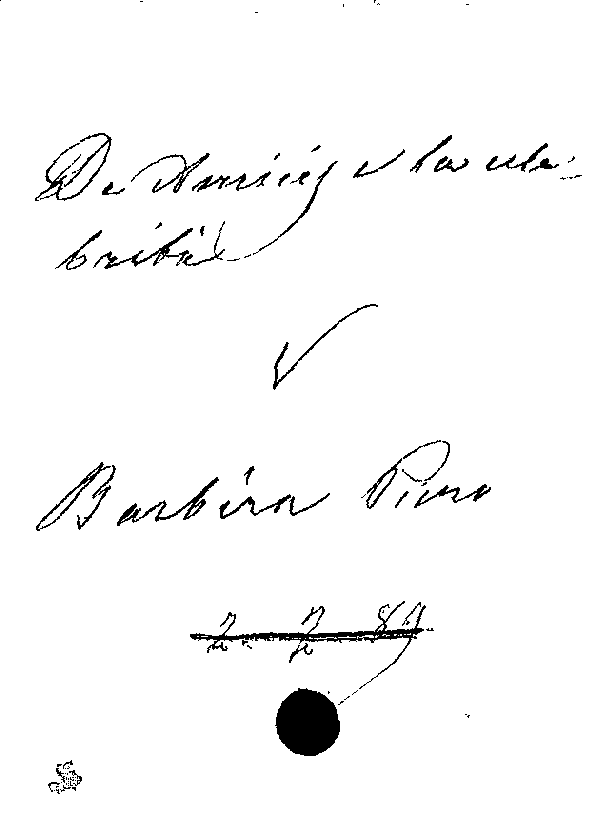 De Amicis e la cele-
brità
Barbéra Piero
2. 7. 89